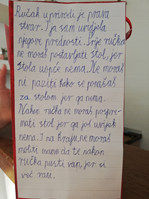 Ručak u prirodi je prava
stvar. I ja vam uvijek
njegove prednosti. Prije ručka
ne moraš postavljati stol, jer
stola uopće nema. Ne moraš
ni paziti kako se ponašaš
za stolom jer ga nema.
Nakon ručka ne moraš pospre-
mati stol jer ga još uvijek
nema. I na kraju ne moraš
moliti mamu da te nakon
ručka pusti van, jer si
već vani.